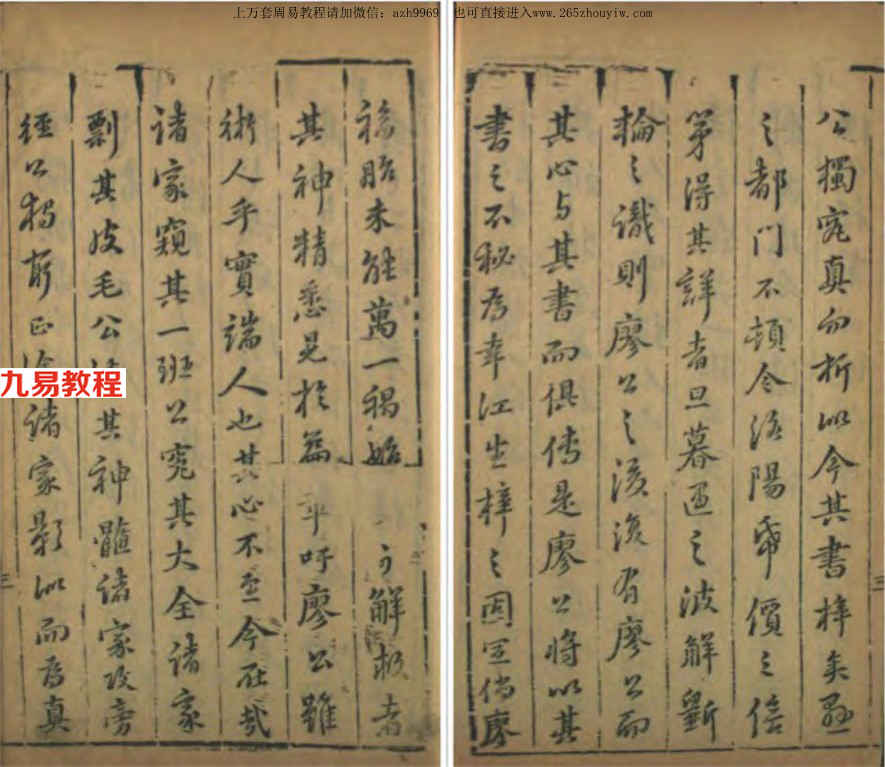 上万套周易教程请加微信：azh9969 也可直接进入www.265zhouyiw.com
福胎未能萬一禍始 解救者
其神精悉見於篇 吁廖公雖
術人乎實端人也其心不至今在哉
諸家窺其一班公究其大全諸家
剽其皮毛公 其神髓諸家攻旁
徑公獨窮正 諸家影似而為真
九易教程
三
公獨究真而析似今其書梓矣懸
之都門不頓令洛陽帋價之倍
第得其詳者旦暮遇之波解斵
輪之識則廖公之後復有廖公而
其心与其書而俱傳是廖公將以其
書之不秘為幸江生梓之固宜倘廖
三